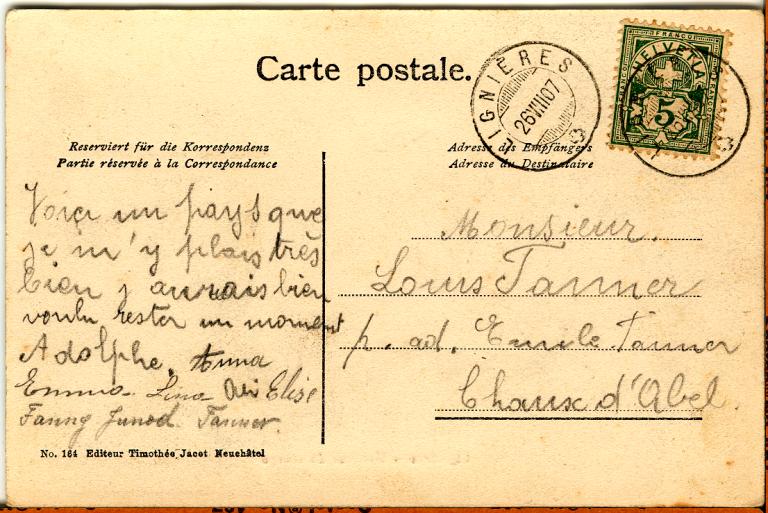 Carte postale.
LIGNIÈRES
26 VIII 07
FRANCO
HELVETIA
5
Reserviert für die Korrespondenz
Partie réservée à la Correspondance
Adresse des Empfängers
Adresse du Destinataire
Voici un pays que
je m'y plais très
bien j aurais bien
voulu rester un moment
Adolphe. Anna
Emma Lina Elise
Fanny Junod. Tanner
Monsieur.
Louis Tanner
p. ad. Emile Tanner
Chaux d'Abel.
No. 164 Editeur Timothée Jacot Neuchâtel